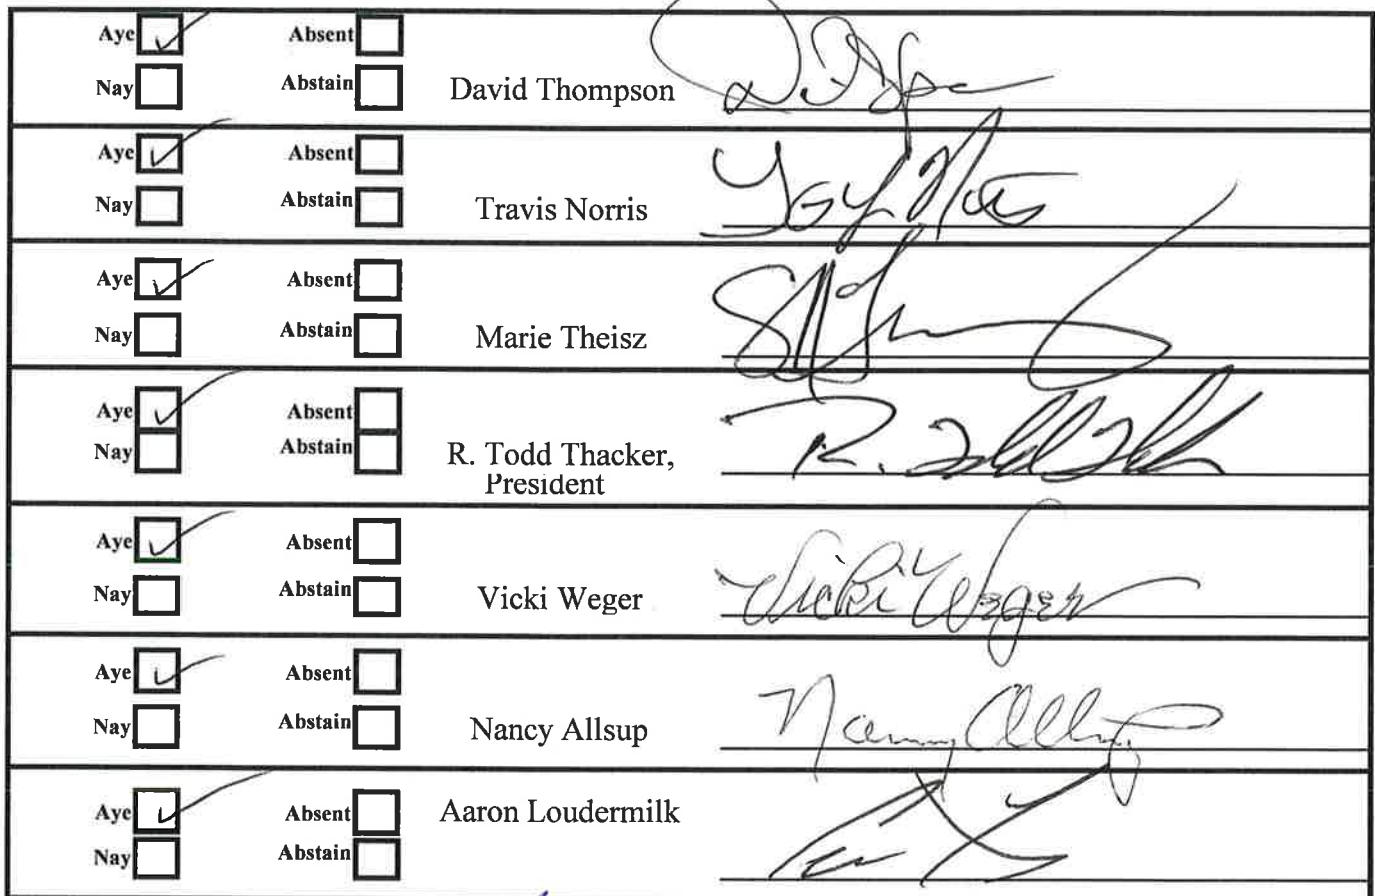 Aye Absent
Nay Abstain David Thompson
Aye Absent
Nay Abstain Travis Norris
Aye Absent
Nay Abstain Marie Theisz
Aye Absent
Nay Abstain R. Todd Thacker,
President
Aye Absent
Nay Abstain Vicki Weger Vicki Weger
Aye Absent
Nay Abstain Nancy Allsup
Aye Absent Aaron Loudermilk
Nay Abstain